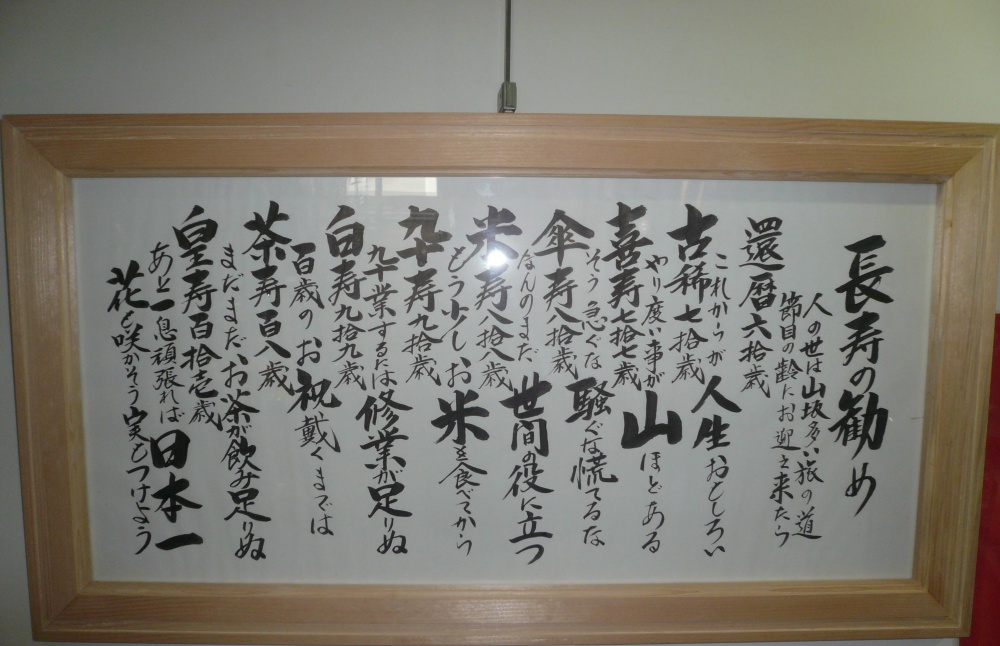 長寿の勧め
人の世は山坂多い旅の道
節目の齢にお迎え来たら
還暦六拾歳
これからが人生おもしろい
古稀七拾歳
やり度い事が山ほどある
喜寿七拾七歳
そう急ぐな騒ぐな慌てるな
傘寿八拾歳
ほんのまだ世間の役に立つ
米寿八拾八歳
もう少しお米を食べてから
九十寿九拾歳
九十業するには修業が足りぬ
白寿九拾九歳
百歳のお祝戴くまでは
茶寿百八歳
まだまだお茶が飲み足りぬ
皇寿百拾壱歳
あと一息頑張れば日本一
花も咲かそう実もつけよう